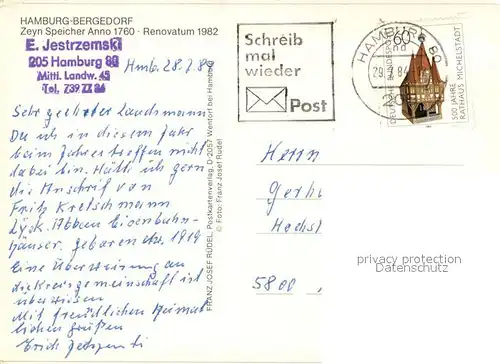 HAMBURG-BERGEDORF
Zeyn Speicher Anno 1760 · Renovatum 1982
E. Jestrzemski
205 Hamburg 80
Mittl. Landw. 45
Tel. 739 77 86
Hmb. 28.7.84
Sehr geehrter Landsmann
Da ich in diesem Jahr
beim Jahrestreffen nicht
dabei bin. Hätte ich gern
die Anschrift von
Fritz Kretschmann
Lyck. Abbau Eisenbahn-
häuser. geboren etw. 1919
Eine Überweisung an
die Kreisgemeinschaft ist
überwiesen
Mit freundlichen Heimat
lichen grüßen
Erich
FRANZ JOSEF RÜDEL, Postkartenverlag, D-2057 Wentorf bei Hamburg
© Foto: Franz Josef Rüdel
Schreib
mal
wieder
Post
HAMBURG 80
DEUTSCHE BUNDESPOST
60
500 JAHRE
RATHAUS MICHELSTADT
Herrn
Gerh
5800
privacy protection
Datenschutz